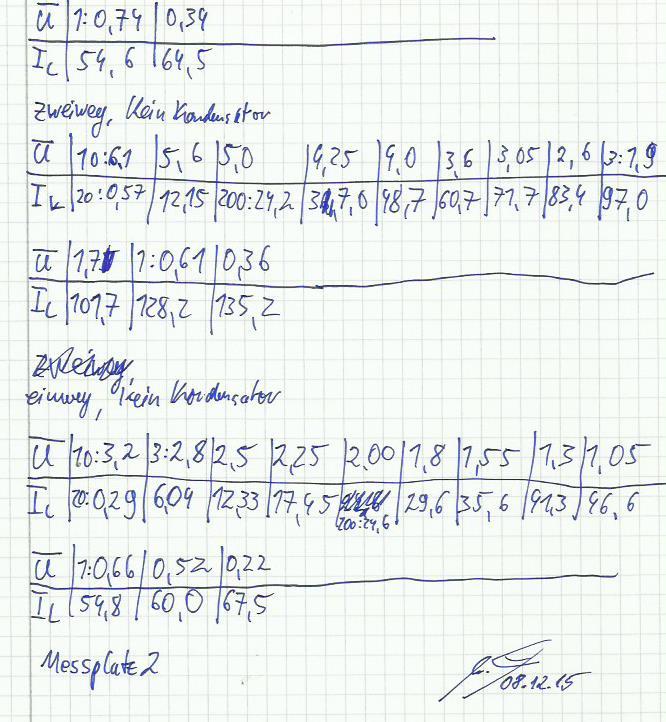 Ū | 1:0,74 | 0,34
I_L | 54,6 | 64,5
zweiweg, kein Kondensator
Ū | 10:6,1 | 5,6 | 5,0 | 4,25 | 4,0 | 3,6 | 3,05 | 2,6 | 3:1,9
I_L | 20:0,57 | 12,15 | 200:24,2 | 37,0 | 48,7 | 60,7 | 71,7 | 83,4 | 97,0
Ū | 1,7 | 1:0,61 | 0,36
I_L | 101,7 | 128,2 | 135,2
einweg, kein Kondensator
Ū | 10:3,2 | 3:2,8 | 2,5 | 2,25 | 2,00 | 1,8 | 1,55 | 1,3 | 1,05
I_L | 20:0,29 | 6,04 | 12,33 | 17,45 | 200:24,6 | 29,6 | 35,6 | 41,3 | 46,6
Ū | 1:0,66 | 0,52 | 0,22
I_L | 54,8 | 60,0 | 67,5
Messplatz 2
08.12.15